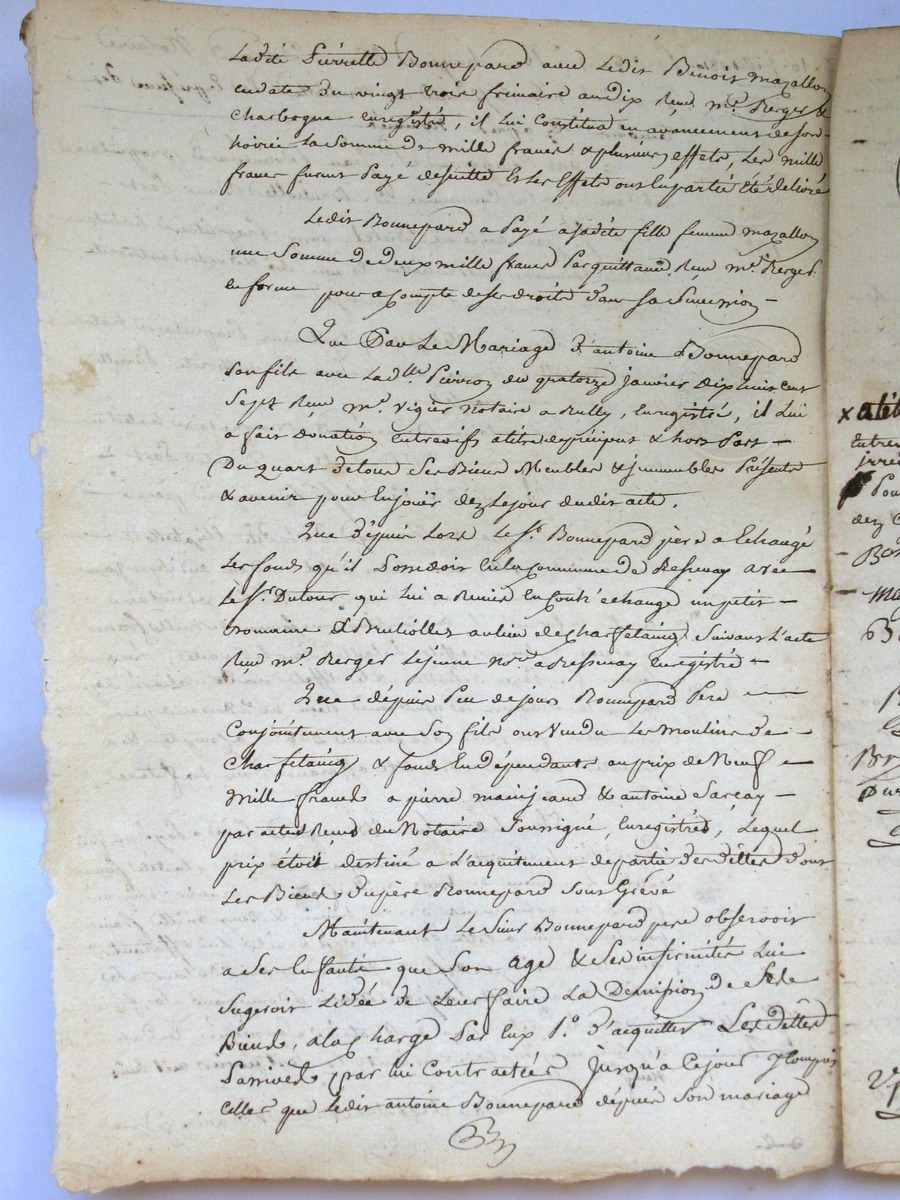 Ladite Pierrette Bonnepard avec Ledit Benoit mazallon
en date du vingt trois frimaire an dix Reçu me. Berger &
Charbogne enregistré, il lui Constitua en avancement de son
hoirie La Somme de mille francs & plusieurs effets, Les mille
francs furent Payé desuitte Et Les Effets ont En partie été délivré
Ledit Bonnepard a Payé a sadite fille femme mazallon
une Somme de deux mille francs Par quittance Reçu me. Berger
en forme pour acompte de ses droits dans sa Succession —
Que Dans Le Mariage d'antoine Bonnepard
Son fils avec Lad.lle Pierron du quatorze janvier dix huit cent
Sept Reçu me. Vigier Notaire a Rully, Enregistré, il Lui
a fait donation entrevifs atitre de préciput & hors Part —
Du quart de tous Ses Biens Meubles & immeubles Présents
& avenir pour En jouir dez Le jour dudit acte.
Que dépuis Lors Le Sr. Bonnepard père a Echangé
Les fonds qu'il Possedoit En La Commune de Ressouay avec —
Le Sr. Dutour qui lui a Remis En Contr'échange un petit —
Domaine & Brutiolles au lieu de Charfetaing Suivant L'acte
Reçu me. Berger Lejeune Nore. a Ressouay Enregistré —
Que dépuis Peu de jours Bonnepard Pere —
Conjointement avec Son fils ont Vendu Les Moulins de —
Charfetaing & fonds En dépendants au prix de Neuf —
Mille francs a pierre mainjeand & antoine Sarcay —
par actes Reçus du Notaire Soussigné, Enregistrés, Lequel
prix étoit destiné a L'acquittement de partie des dettes dont
Les Biens du père Bonnepard Sont Grévé
Maintenant Le Sieur Bonnepard pere observoit
a Ses Enfants que Son age & Ses infirmités Lui
Sugeroit Lidée de Leur faire La Demission de Ses
Biens, a la Charge Par Eux 1.° d'acquitter Les dettes
Passives par lui Contractées jusqu'à Ce jour y Compris
Celles que Ledit antoine Bonnepard dépuis Son mariage
x atit
Entre
irré
Pou
dez